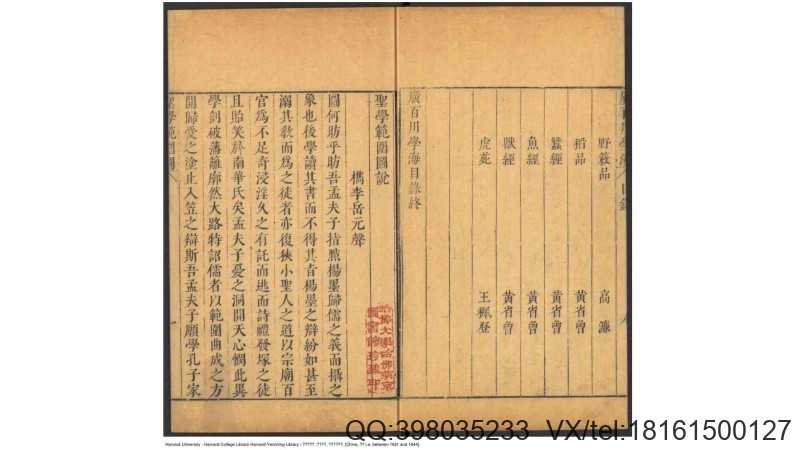 廣百川學海目錄
野蔌品 高濂
稻品 黃省曾
蠶經 黃省曾
魚經 黃省曾
獸經 黃省曾
虎薈
王穉登
廣百川學海目錄終
聖學範圍圖說
檇李岳元聲
圖何昉乎昉吾孟夫子揭黜楊墨歸儒之義而攝之
象也後學讀其書而不得其旨楊墨之辯紛如甚至
溺其敎而爲之徒者亦復狹小聖人之道以宗廟百
官爲不足奇浸淫久之有託而逃而詩禮發塚之徒
且貽笑於南華氏矣孟夫子憂之洞開天心憫此異
學剖破藩籬廓然大路特詔儒者以範圍曲成之方
開歸受之塗止入笠之辯斯吾孟夫子願學孔子家
聖學範圍圖
一
Harvard University - Harvard College Library Harvard-Yenching Library / ?????. ????, ??????. [China, ?? i.e. between 1621 and 1644].
QQ:398035233 VX/tel:18161500127